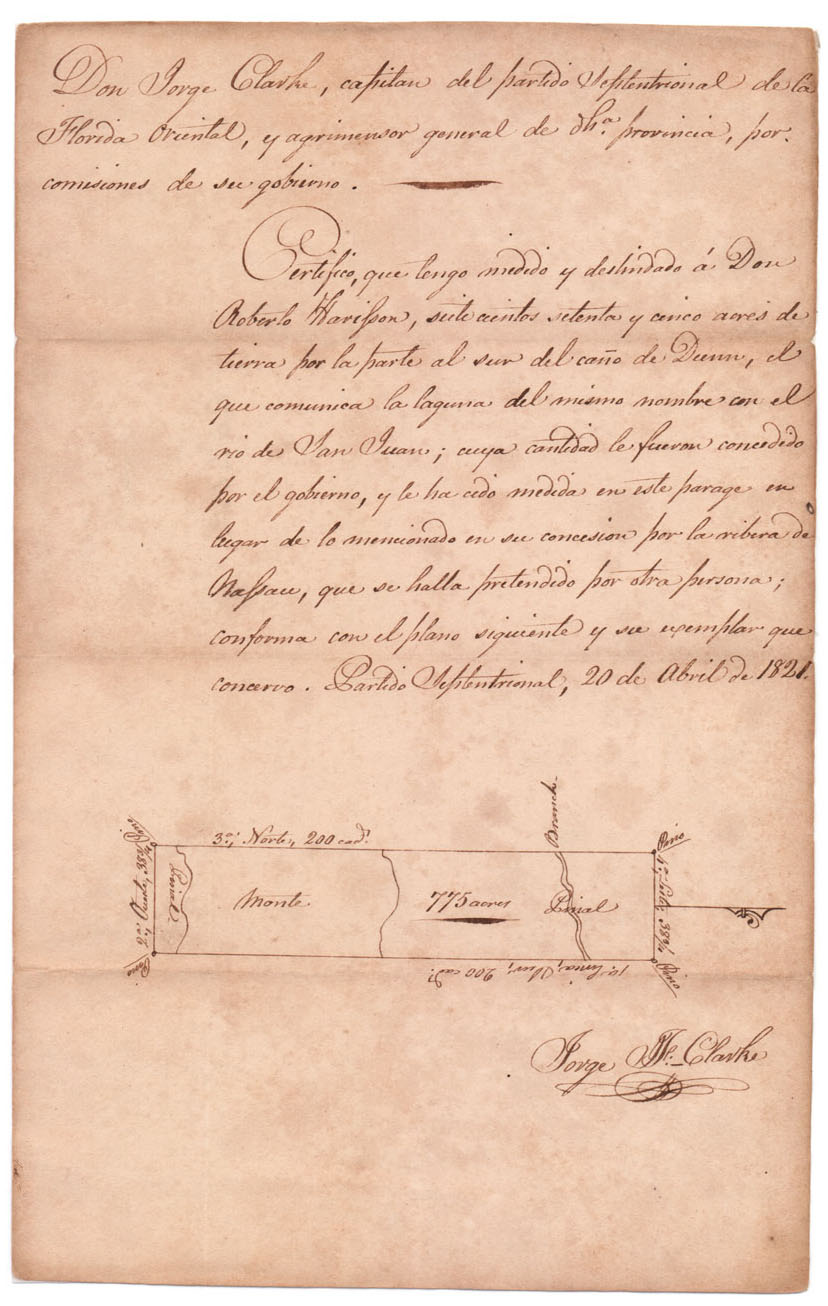 Don Jorge Clarke, capitan del partido Septentrional de la
Florida Oriental, y agrimensor general de dha. provincia, por
comisiones de su gobierno.
Certifico, que tengo medido y deslindado á Don
Roberto Harisson, siete cientos setenta y cinco acres de
tierra por la parte al sur del caño de Dunn, el
que comunica la laguna del mismo nombre con el
rio de San Juan; cuya cantidad le fueron concedido
por el gobierno, y le ha cido medida en este parage en
lugar de lo mencionado en su concesion por la ribera de
Nassau, que se halla pretendido por otra persona;
conforma con el plano siguiente y su exemplar que
concervo. Partido Septentrional, 20 de Abril de 1821.
Branch.
3a; Norte, 200 cads.
Pino
Pino
2a; Oueste, 38 3/4
Pinal
Monte
775 acres
Pinal
4a; Este, 38 3/4
Pino
Pino
1a. linea; Sur; 200 cads.
Jorge J. F. Clarke